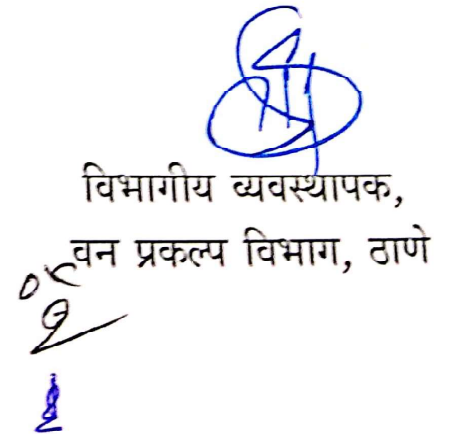 विभागीय व्यवस्थापक,
वन प्रकल्प विभाग, ठाणे